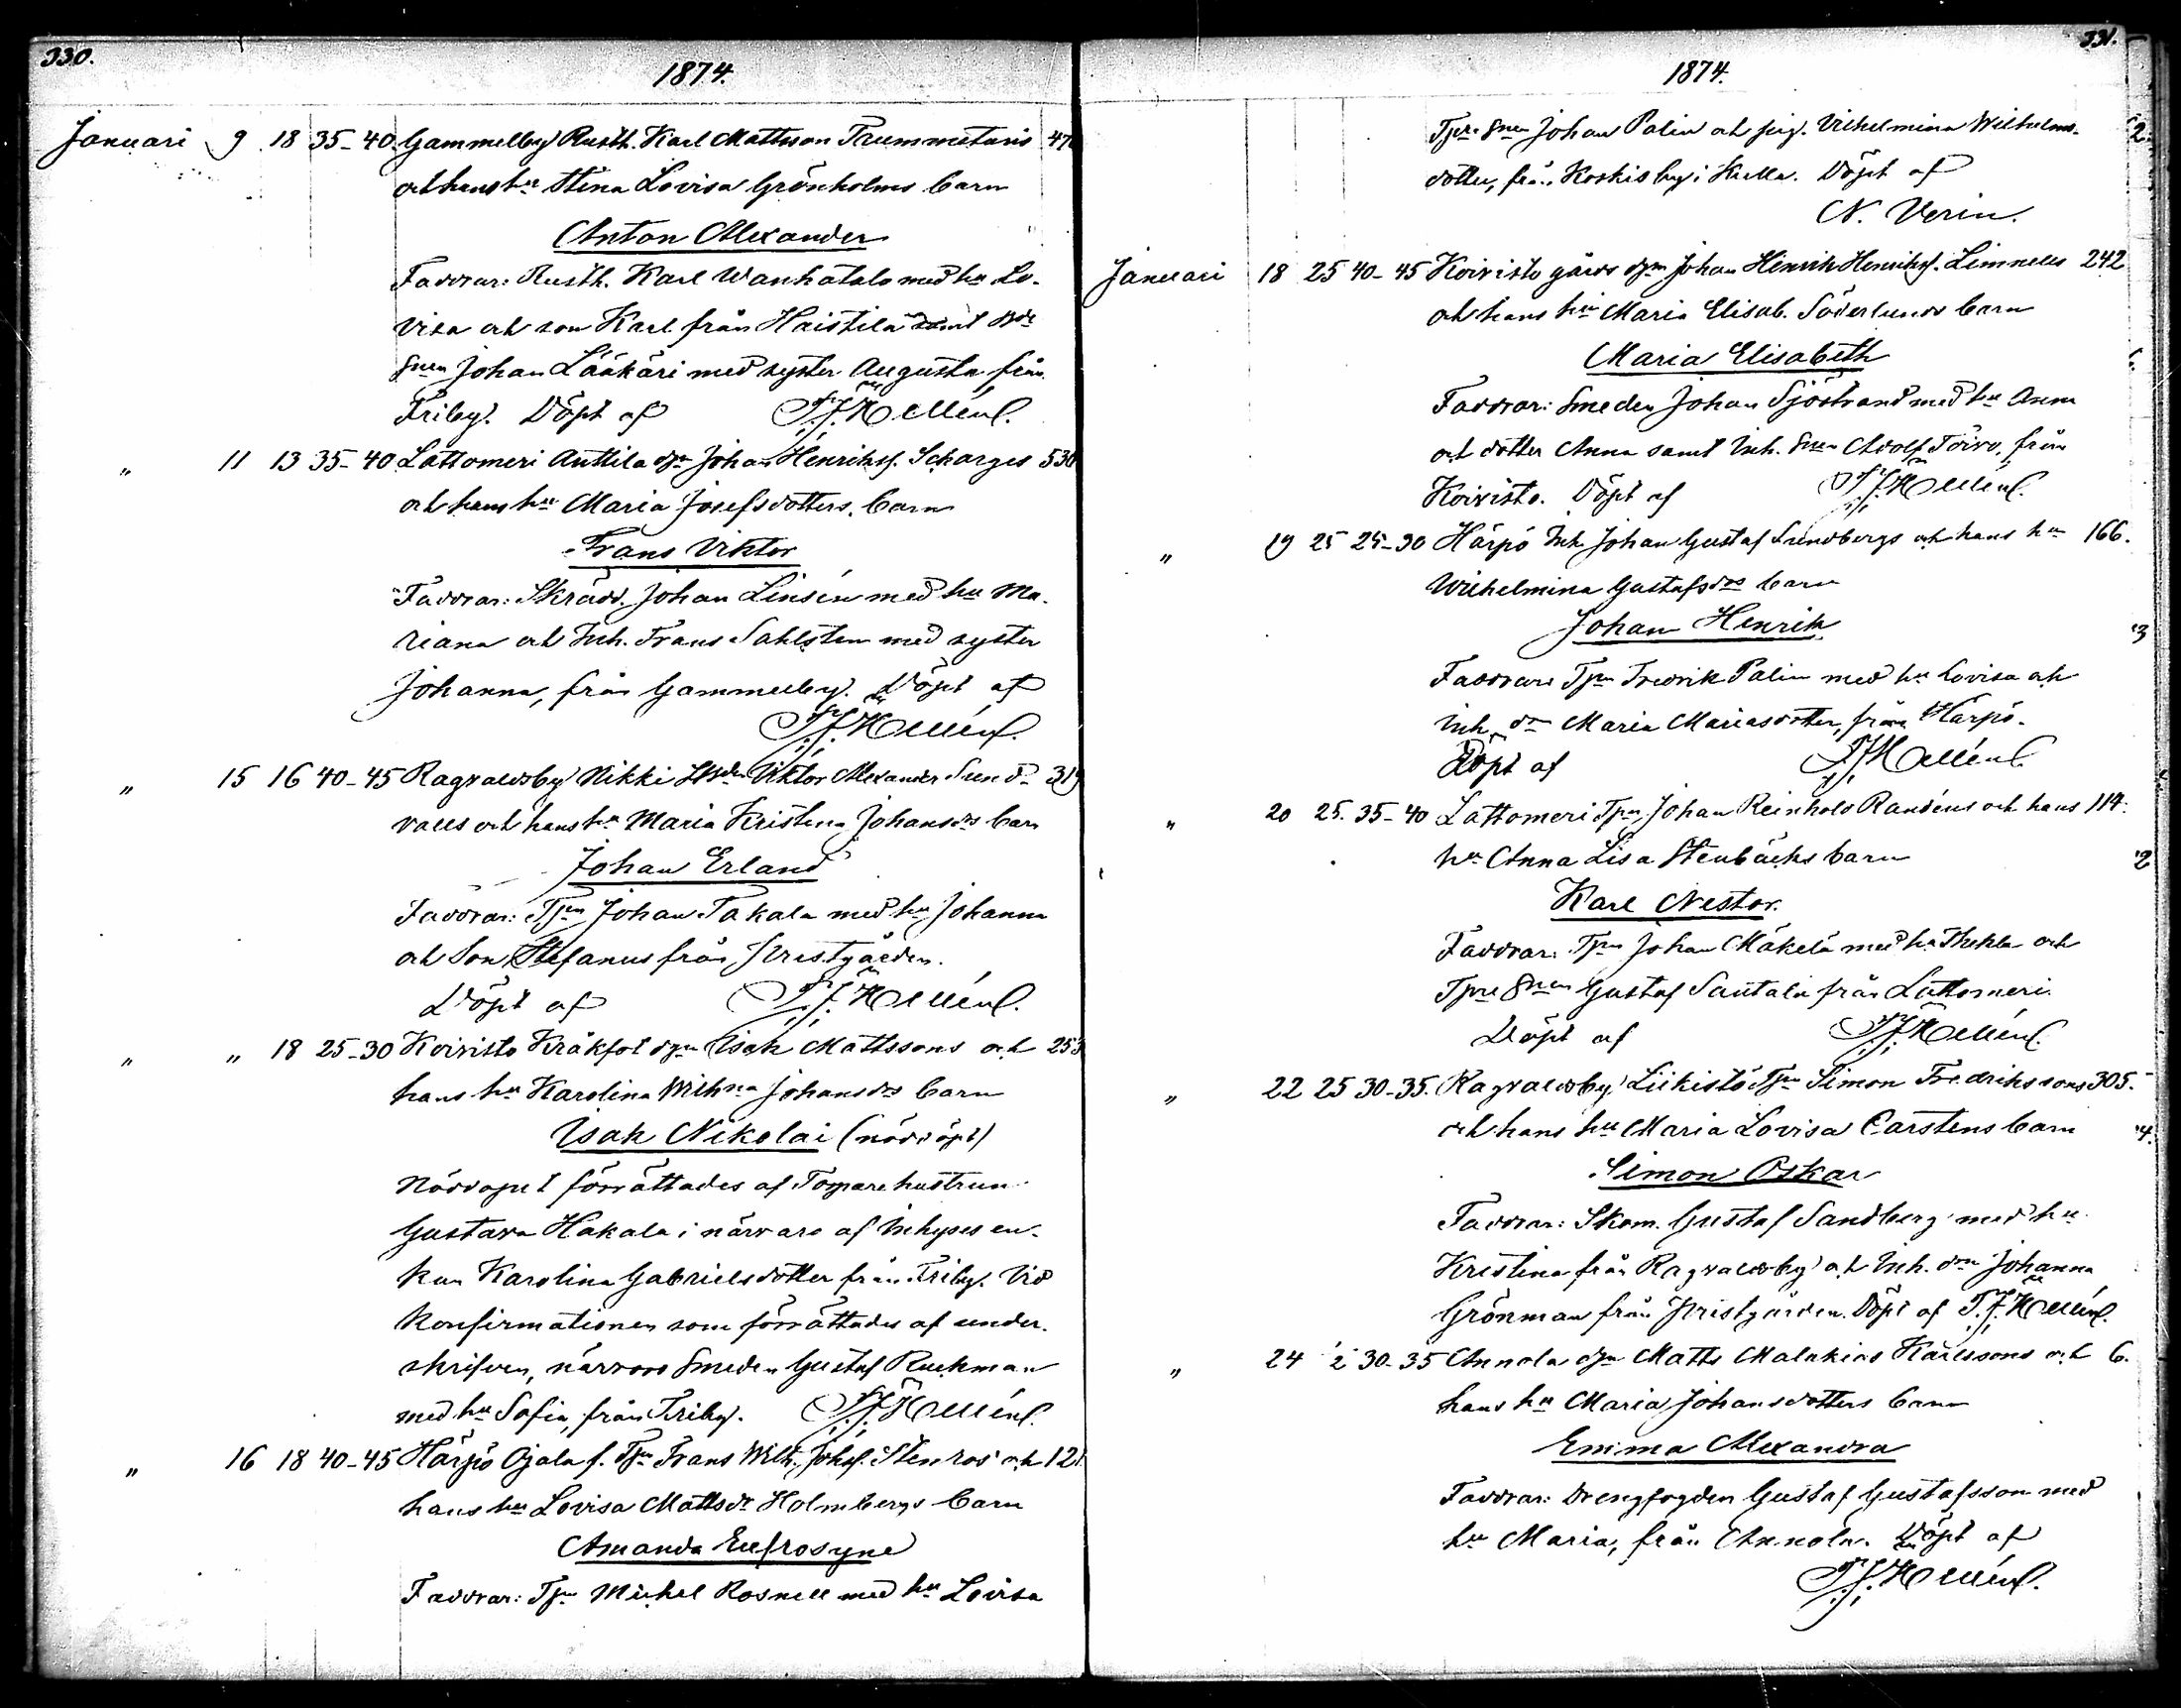 330.
1874.
Januari 9 18 35-40 Gammelby Rusth. Karl Mattsson Trummetaris 47
och hans hu Stina Lovisa Grönholms barn
Anton Alexander
Faddrar: Rusth. Karl Wanhatalo med hu Lo-
visa och son Karl från Haistila samt
snen Johan Lääkäri med syster Augusta från
Friby. Döpt af F. J. Hellén.
" 11 13 35-40 Lattomeri Anttila dgn Johan Henrikss. Scharges 530
och hans hu Maria Josefsdotters barn
Frans Viktor
Faddrar: Skrädd. Johan Linsén med hu Ma-
riana och Inh. Frans Sahlsten med syster
Johanna, från Gammelby. Döpt af
F. J. Hellén.
" 15 16 40-45 Ragvaldsby Nikki Viktor Alexander Sund- 319
valls och hans hu Maria Kristina Johansds barn
Johan Erland
Faddrar: Tpn Johan Takala med hu Johanna
och Son Stefanus från Prestgården.
Döpt af F. J. Hellén.
" " 18 25-30 Koivisto Kråkfot dgn Isak Mattssons och 253
hans hu Karolina Wilhna Johansds barn
Isak Nikolai (nöddöpt)
Nöddopet förrättades af Torparehustrun
Gustava Hakala i närvaro af Inhyses en-
kan Karolina Gabrielsdotter från Friby. Vid
Konfirmationen som förrättades af under-
skrifven, närvoro Smeden Gustaf Ruckman
med hu Sofia, från Friby. F. J. Hellén.
" 16 18 40-45 Härpö Ojala f. Tpn Frans Wilh. Johss. Stenros och 121.
hans hu Lovisa Mattsdr Holmbergs barn
Amanda Eufrosyne
Faddrar: Tpn Michel Rosnell med hu Lovisa
331.
1874.
Tpre snen Johan Palin och pig. Vilhelmina Wilhelms-
dotter, från Koskisby i Kulla. Döpt af
N. Verin.
Januari 18 25 40-45 Koivisto gårds dgn Johan Henrik Henrikss. Limnells 242
och hans hu Maria Elisab. Söderlunds barn
Maria Elisabeth
Faddrar: Smeden Johan Sjöstrand med hu Anna
och dotter Anna samt Inh. snen Adolf Toivo, från
Koivisto. Döpt af F. J. Hellén.
" 19 25 25-30 Härpö Inh. Johan Gustaf Lundbergs och hans hu 166.
Wilhelmina Gustafsds barn
Johan Henrik
Faddrare Tpn Fredrik Palin med hu Lovisa och
Inh. dn Maria Mariasdotter, från Härpö.
Döpt af F. J. Hellén.
" 20 25. 35-40 Lattomeri Tpn Johan Reinhold Randéns och hans 114.
hu Anna Lisa Stenbäcks barn
Karl Nestor.
Faddrar: Tpn Johan Mäkelä med hu Thekla och
Tpre snen Gustaf Santala från Lattomeri.
Döpt af F. J. Hellén.
" 22 25 30-35. Ragvaldsby Liikistö Tpn Simon Fredrikssons 305.
och hans hu Maria Lovisa Carstens barn
Simon Oskar
Faddrar: Skom. Gustaf Sandberg med hu
Kristina från Ragvaldsby och Inh. dn Johanna
Grönman från Prestgården. Döpt af F. J. Hellén.
" 24 30-35 Annola dgn Matts Malakias Karlssons och 6.
hans hu Maria Johansdotters barn
Emma Alexandra
Faddrar: Drengfogden Gustaf Gustafsson med
hu Maria, från Annola. Döpt af
F. J. Hellén.